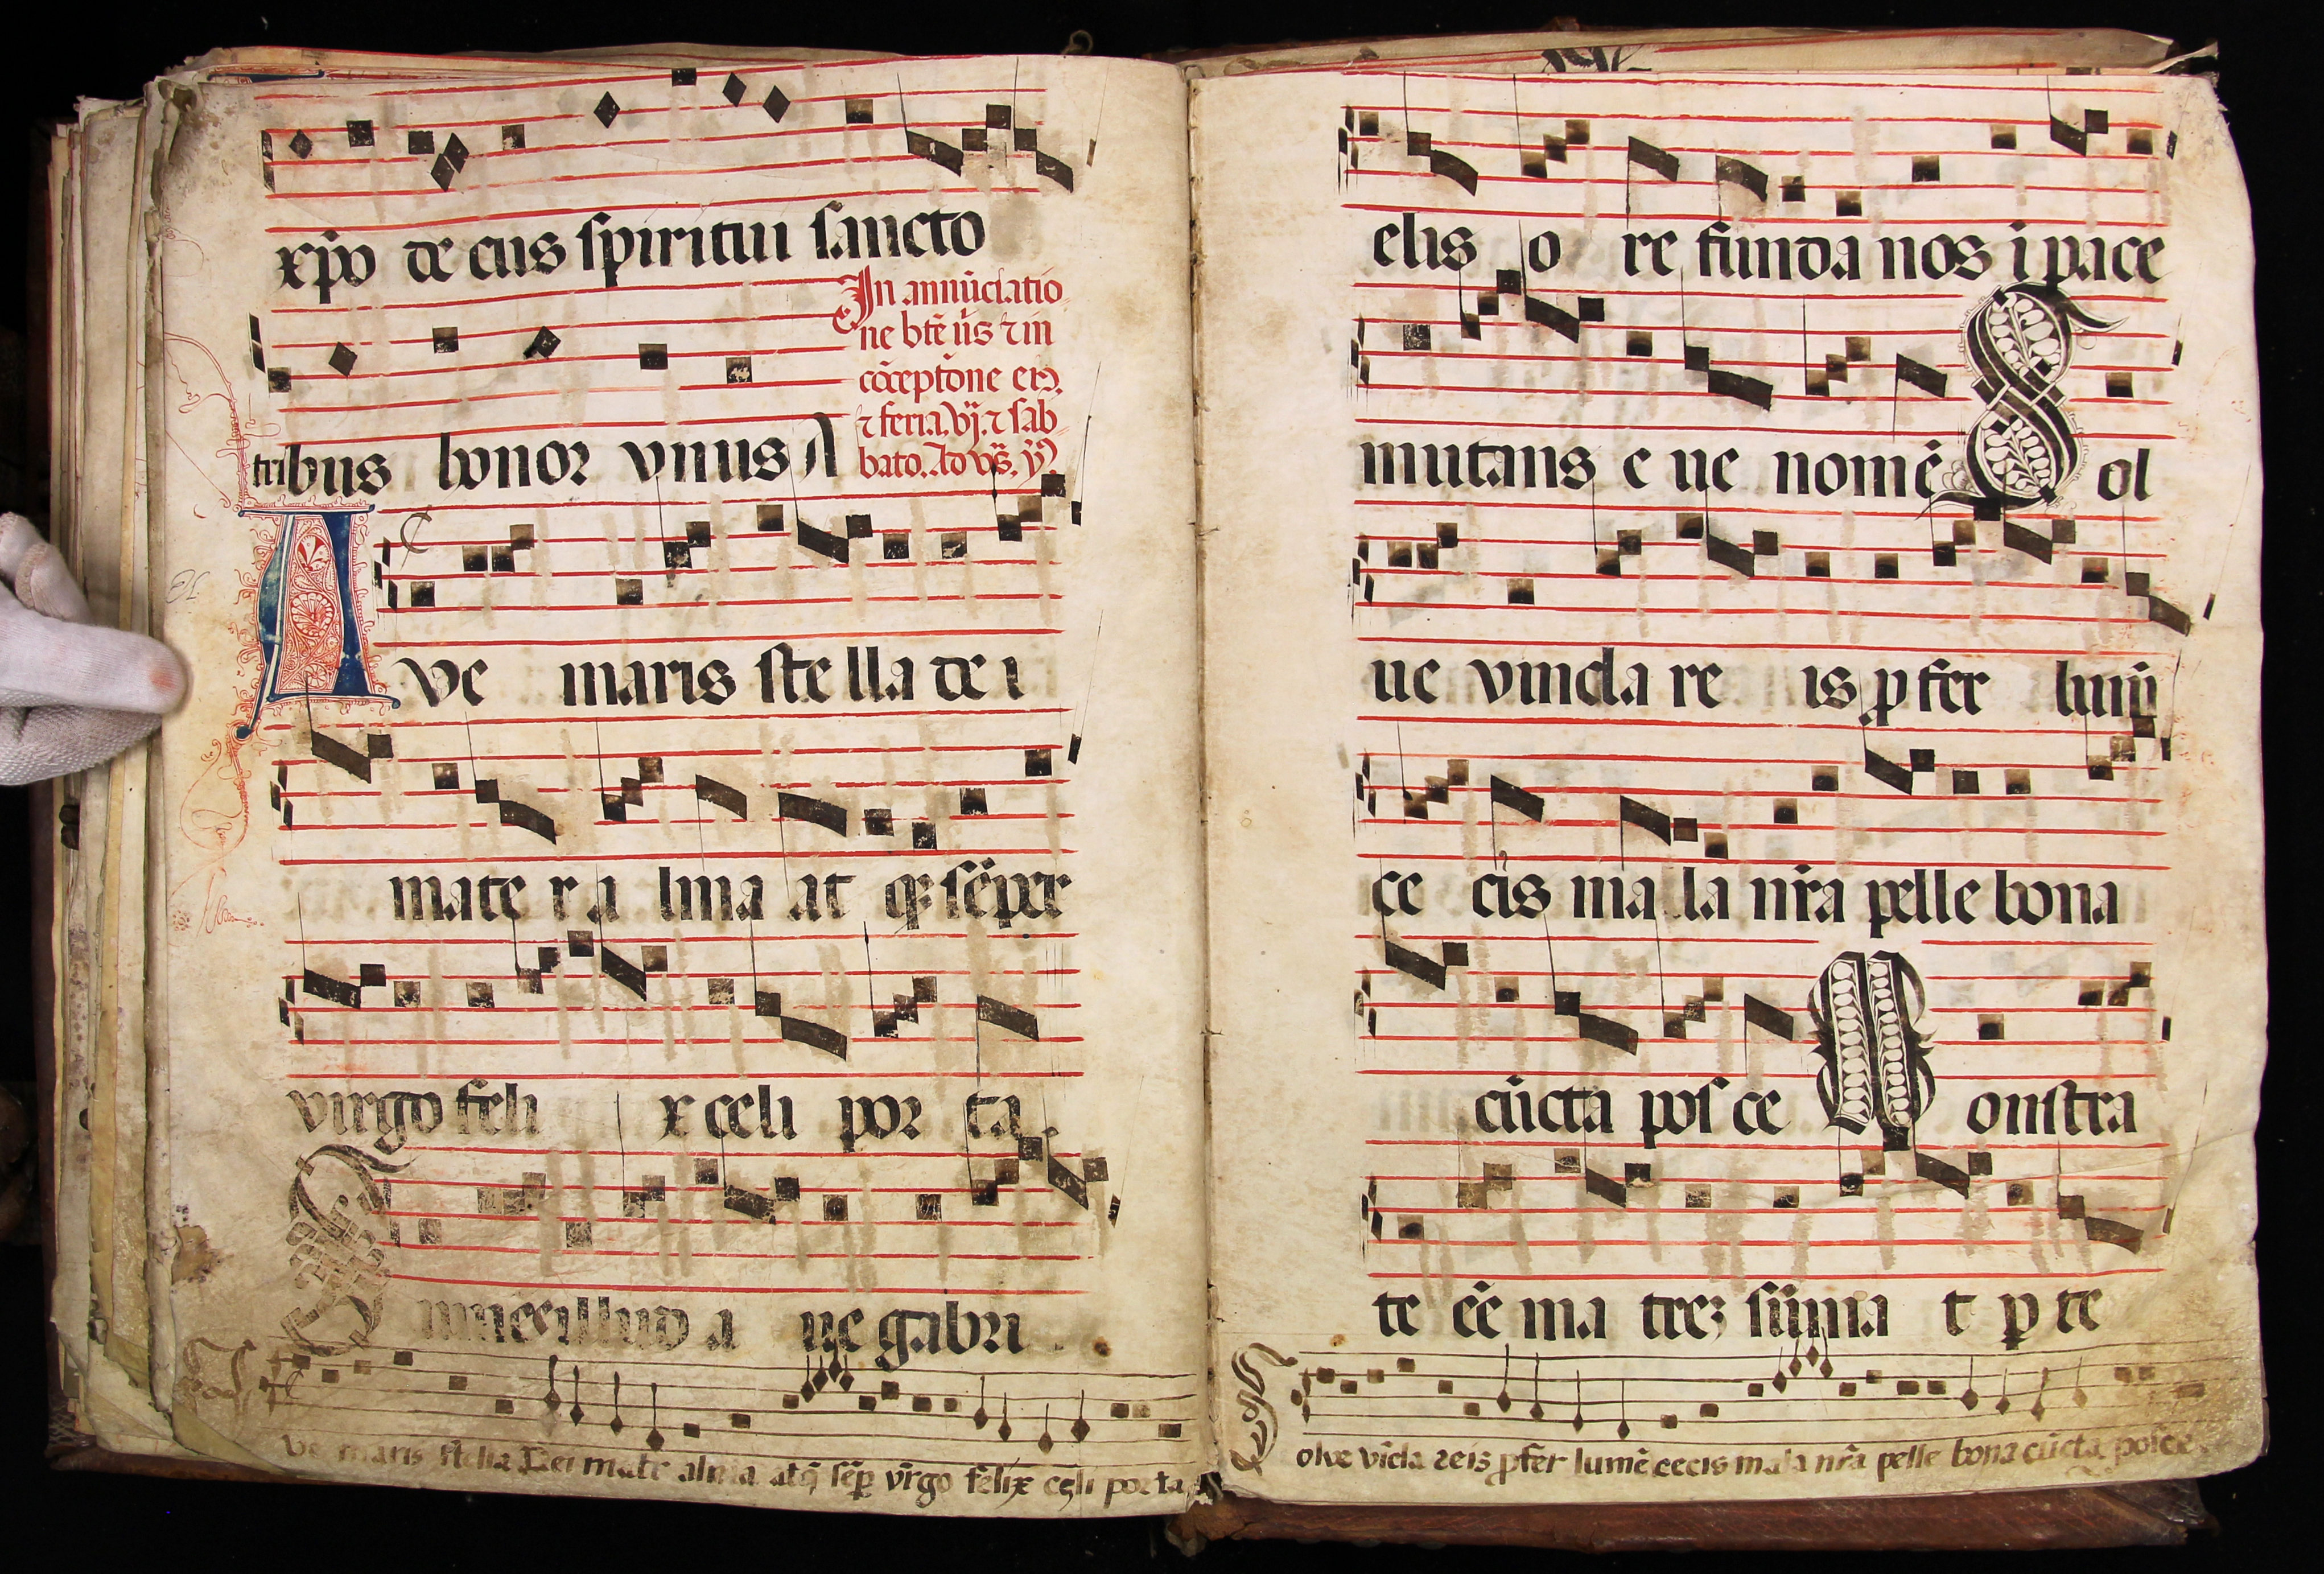 xp̄o de cus spiritui sancto
In annūciatio
ne btē v̄gīs ⁊ in
cōceptōne eiꝰ.
⁊ feria. vj. ⁊ sab
bato. Ad vs̄. ẏ
tribus honor vnus A
Ave maris ste lla de i
mate r a lma at qꝫ sēper
virgo feli x celi por ta.
Sumes illud a ue gabri
ve maris stella Dei mate alma atq̄ sēp̲ vīrgo felix celi porta
elis o re funda nos ī pace
mutans e ue nomē Sol
ue vincla re is ꝓ fer lumē
ce cis ma la nr̄a pelle bona
cūcta pos ce Monstra
te ēe ma treꝫ sūma t p̲ te
Solve vīcla reis ꝓfer lumē cecis mala nr̄a pelle bona cūcta posce